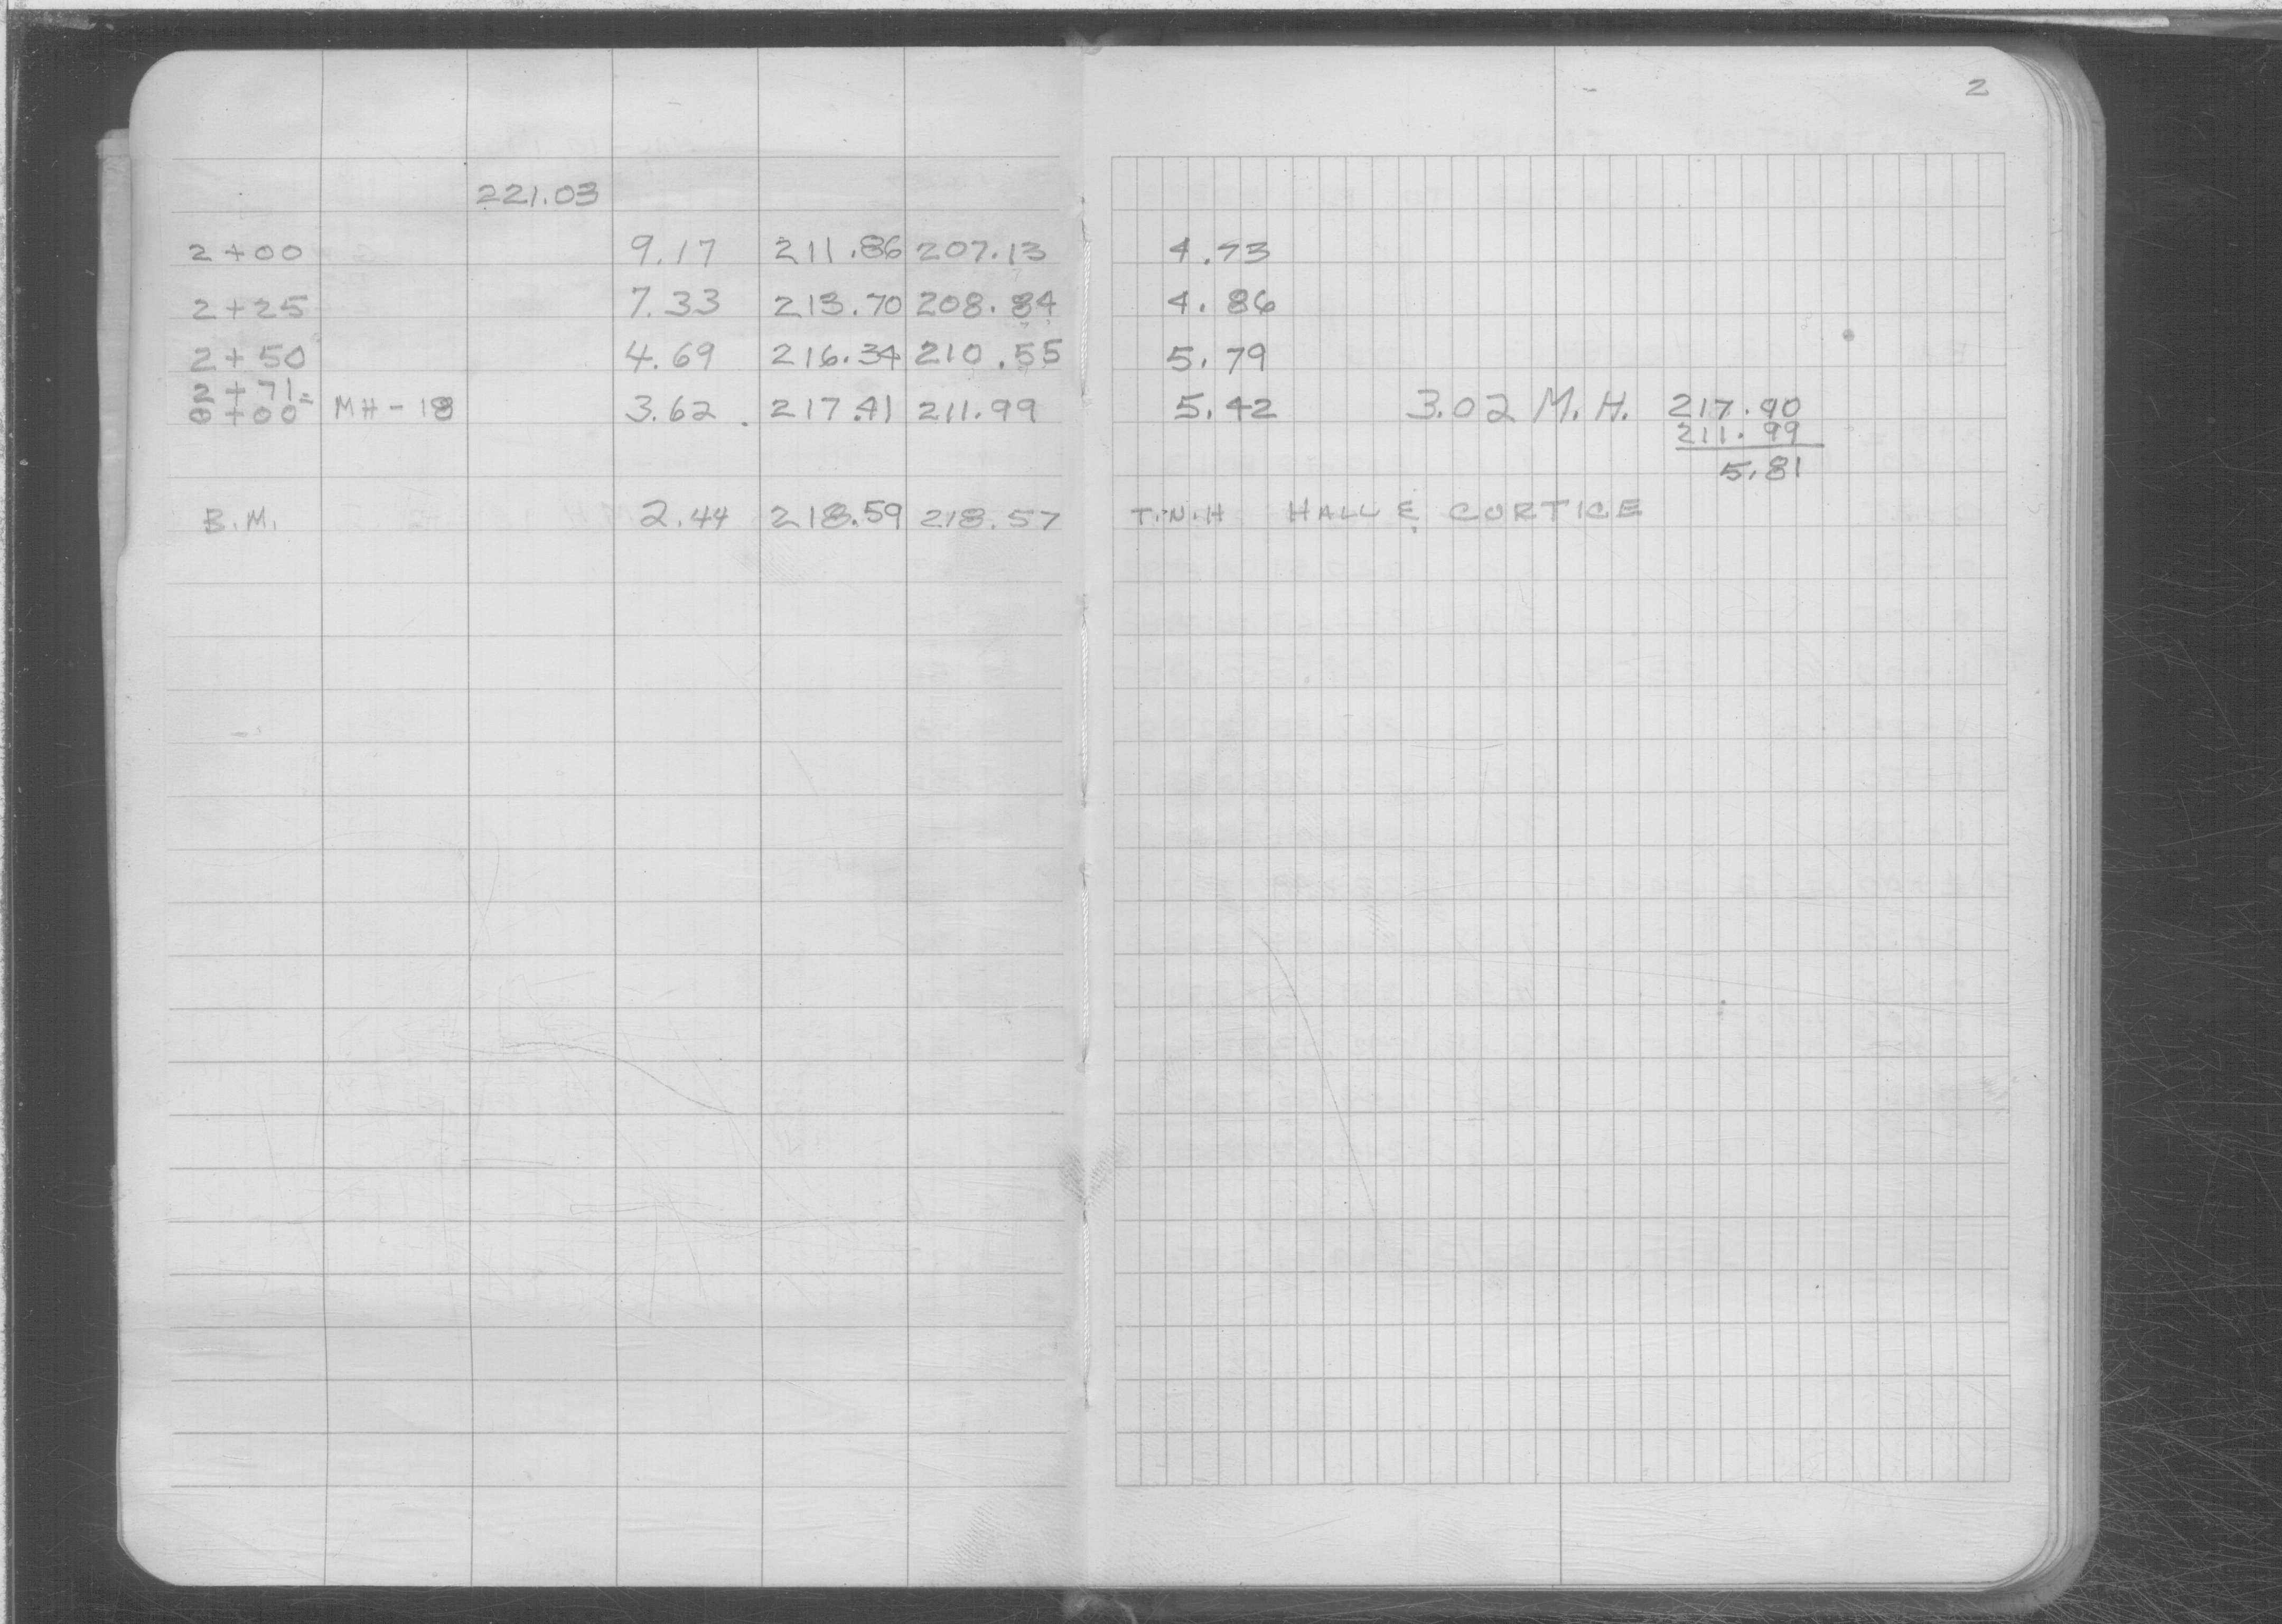 2
221.03
2+00 9.17 211.86 207.13 4.73
2+25 7.33 213.70 208.84 4.86
2+50 4.69 216.34 210.55 5.79
2+71=
0+00 MH-18 3.62 217.41 211.99 5.42 3.02 M.H. 217.90
211.99
5.81
B.M. 2.44 218.59 218.57 T.N.H HALL & CURTICE